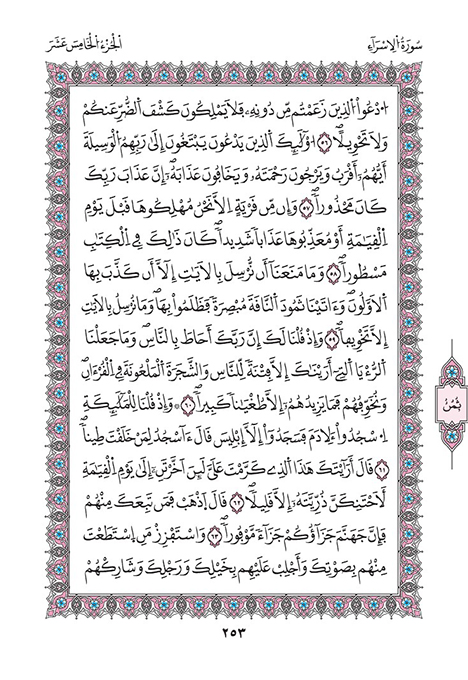 سُورَةُ الِاسْرَآءِ
الجُزْءُ الْخَامِسَ عَشَرَ
اُ۟دْعُوا۟ الذِينَ زَعَمْتُم مِّن دُونِهِۦ فَلَا يَمْلِكُونَ كَشْفَ الضُّرِّ عَنكُمْ
وَلَا تَحْوِيلًاۖ ٥٦ اُ۟وْلَٰٓئِكَ الذِينَ يَدْعُونَ يَبْتَغُونَ إِلَىٰ رَبِّهِمُ الْوَسِيلَةَ
أَيُّهُمُۥٓ أَقْرَبُ وَيَرْجُونَ رَحْمَتَهُۥ وَيَخَافُونَ عَذَابَهُۥٓۖ إِنَّ عَذَابَ رَبِّكَ
كَانَ مَحْذُوراًۖ ٥٧ وَإِن مِّن قَرْيَةٍ اِلَّا نَحْنُ مُهْلِكُوهَا قَبْلَ يَوْمِ
الْقِيَٰمَةِ أَوْ مُعَذِّبُوهَا عَذَاباً شَدِيداًۖ كَانَ ذَٰلِكَ فِے الْكِتَٰبِ
مَسْطُوراًۖ ٥٨ وَمَا مَنَعَنَآ أَن نُّرْسِلَ بِالَايَٰتِ إِلَّآ أَن كَذَّبَ بِهَا
الَاوَّلُونَۖ وَءَاتَيْنَا ثَمُودَ النَّاقَةَ مُبْصِرَةً فَظَلَمُوا۟ بِهَاۖ وَمَا نُرْسِلُ بِالَايَٰتِ
إِلَّا تَخْوِيفاًۖ ٥٩ وَإِذْ قُلْنَا لَكَ إِنَّ رَبَّكَ أَحَاطَ بِالنَّاسِۖ وَمَا جَعَلْنَا
الرُّءْيَا الَتِےٓ أَرَيْنَٰكَ إِلَّا فِتْنَةً لِّلنَّاسِ وَالشَّجَرَةَ الْمَلْعُونَةَ فِے الْقُرْءَانِۖ
وَنُخَوِّفُهُمْ فَمَا يَزِيدُهُمُۥٓ إِلَّا طُغْيَٰناً كَبِيراًۖ ٦٠ وَإِذْ قُلْنَا لِلْمَلَٰٓئِكَةِ
اِ۟سْجُدُوا۟ لِأٓدَمَ فَسَجَدُوٓا۟ إِلَّآ إِبْلِيسَ قَالَ ءَآسْجُدُ لِمَنْ خَلَقْتَ طِيناًۖ
٦١ قَالَ أَرَٰٓيْتَكَ هَٰذَا الذِے كَرَّمْتَ عَلَيَّ لَئِنَ اَخَّرْتَنِۦٓ إِلَىٰ يَوْمِ الْقِيَٰمَةِ
لَأَحْتَنِكَنَّ ذُرِّيَّتَهُۥٓ إِلَّا قَلِيلًاۖ ٦٢ قَالَ اَ۪ذْهَبْ فَمَن تَبِعَكَ مِنْهُمْ
فَإِنَّ جَهَنَّمَ جَزَآؤُكُمْ جَزَآءً مَّوْفُوراًۖ ٦٣ وَاسْتَفْزِزْ مَنِ اِ۪سْتَطَعْتَ
مِنْهُم بِصَوْتِكَ وَأَجْلِبْ عَلَيْهِم بِخَيْلِكَ وَرَجْلِكَ وَشَارِكْهُمْ
ثُمُنُ
٢٥٣